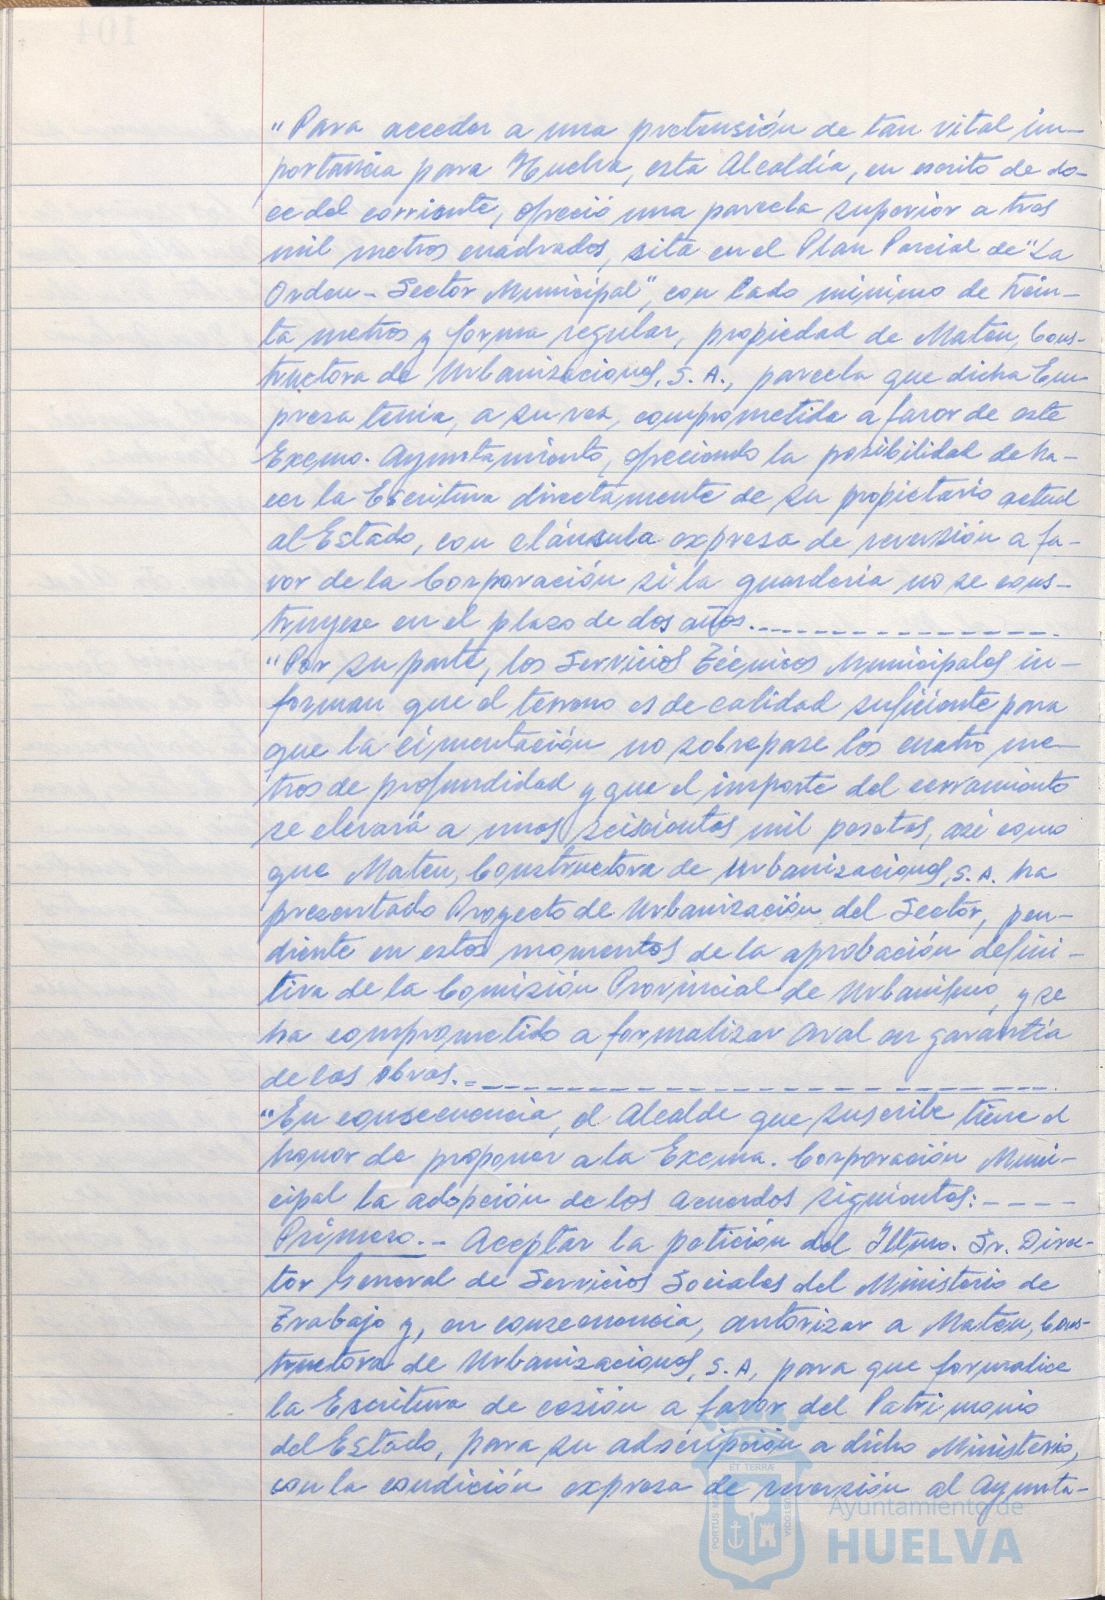 "Para acceder a una pretensión de tan vital im-
portancia para Huelva, esta Alcaldía, en escrito de do-
ce del corriente, ofreció una parcela superior a tres
mil metros cuadrados, sita en el Plan Parcial de "La
Orden - Sector Municipal", con lado mínimo de trein-
ta metros y forma regular, propiedad de Mateu, Cons-
tructora de Urbanizaciones, S. A., parcela que dicha Em-
presa tenía, a su vez, comprometida a favor de este
Excmo. Ayuntamiento, ofreciendo la posibilidad de ha-
cer la Escritura directamente de su propietario actual
al Estado, con cláusula expresa de reversión a fa-
vor de la Corporación si la guardería no se cons-
truyese en el plazo de dos años.
"Por su parte, los Servicios Técnicos Municipales in-
forman que el terreno es de calidad suficiente para
que la cimentación no sobrepase los cuatro me-
tros de profundidad y que el importe del cerramiento
se elevará a unas seiscientas mil pesetas, así como
que Mateu, Constructora de Urbanizaciones, S. A. ha
presentado Proyecto de Urbanización del Sector, pen-
diente en estos momentos de la aprobación defini-
tiva de la Comisión Provincial de Urbanismo, y se
ha comprometido a formalizar aval en garantía
de las obras.
"En consecuencia, el Alcalde que suscribe tiene el
honor de proponer a la Excma. Corporación Muni-
cipal la adopción de los acuerdos siguientes:
Primero.- Aceptar la petición del Iltmo. Sr. Direc-
tor General de Servicios Sociales del Ministerio de
Trabajo y, en consecuencia, autorizar a Mateu, Cons-
tructora de Urbanizaciones, S. A, para que formalice
la Escritura de cesión a favor del Patrimonio
del Estado, para su adscripción a dicho Ministerio,
con la condición expresa de reversión al Ayunta-
PORTUS MARIS ET TERRAE CUSTODIA
Ayuntamiento de
HUELVA